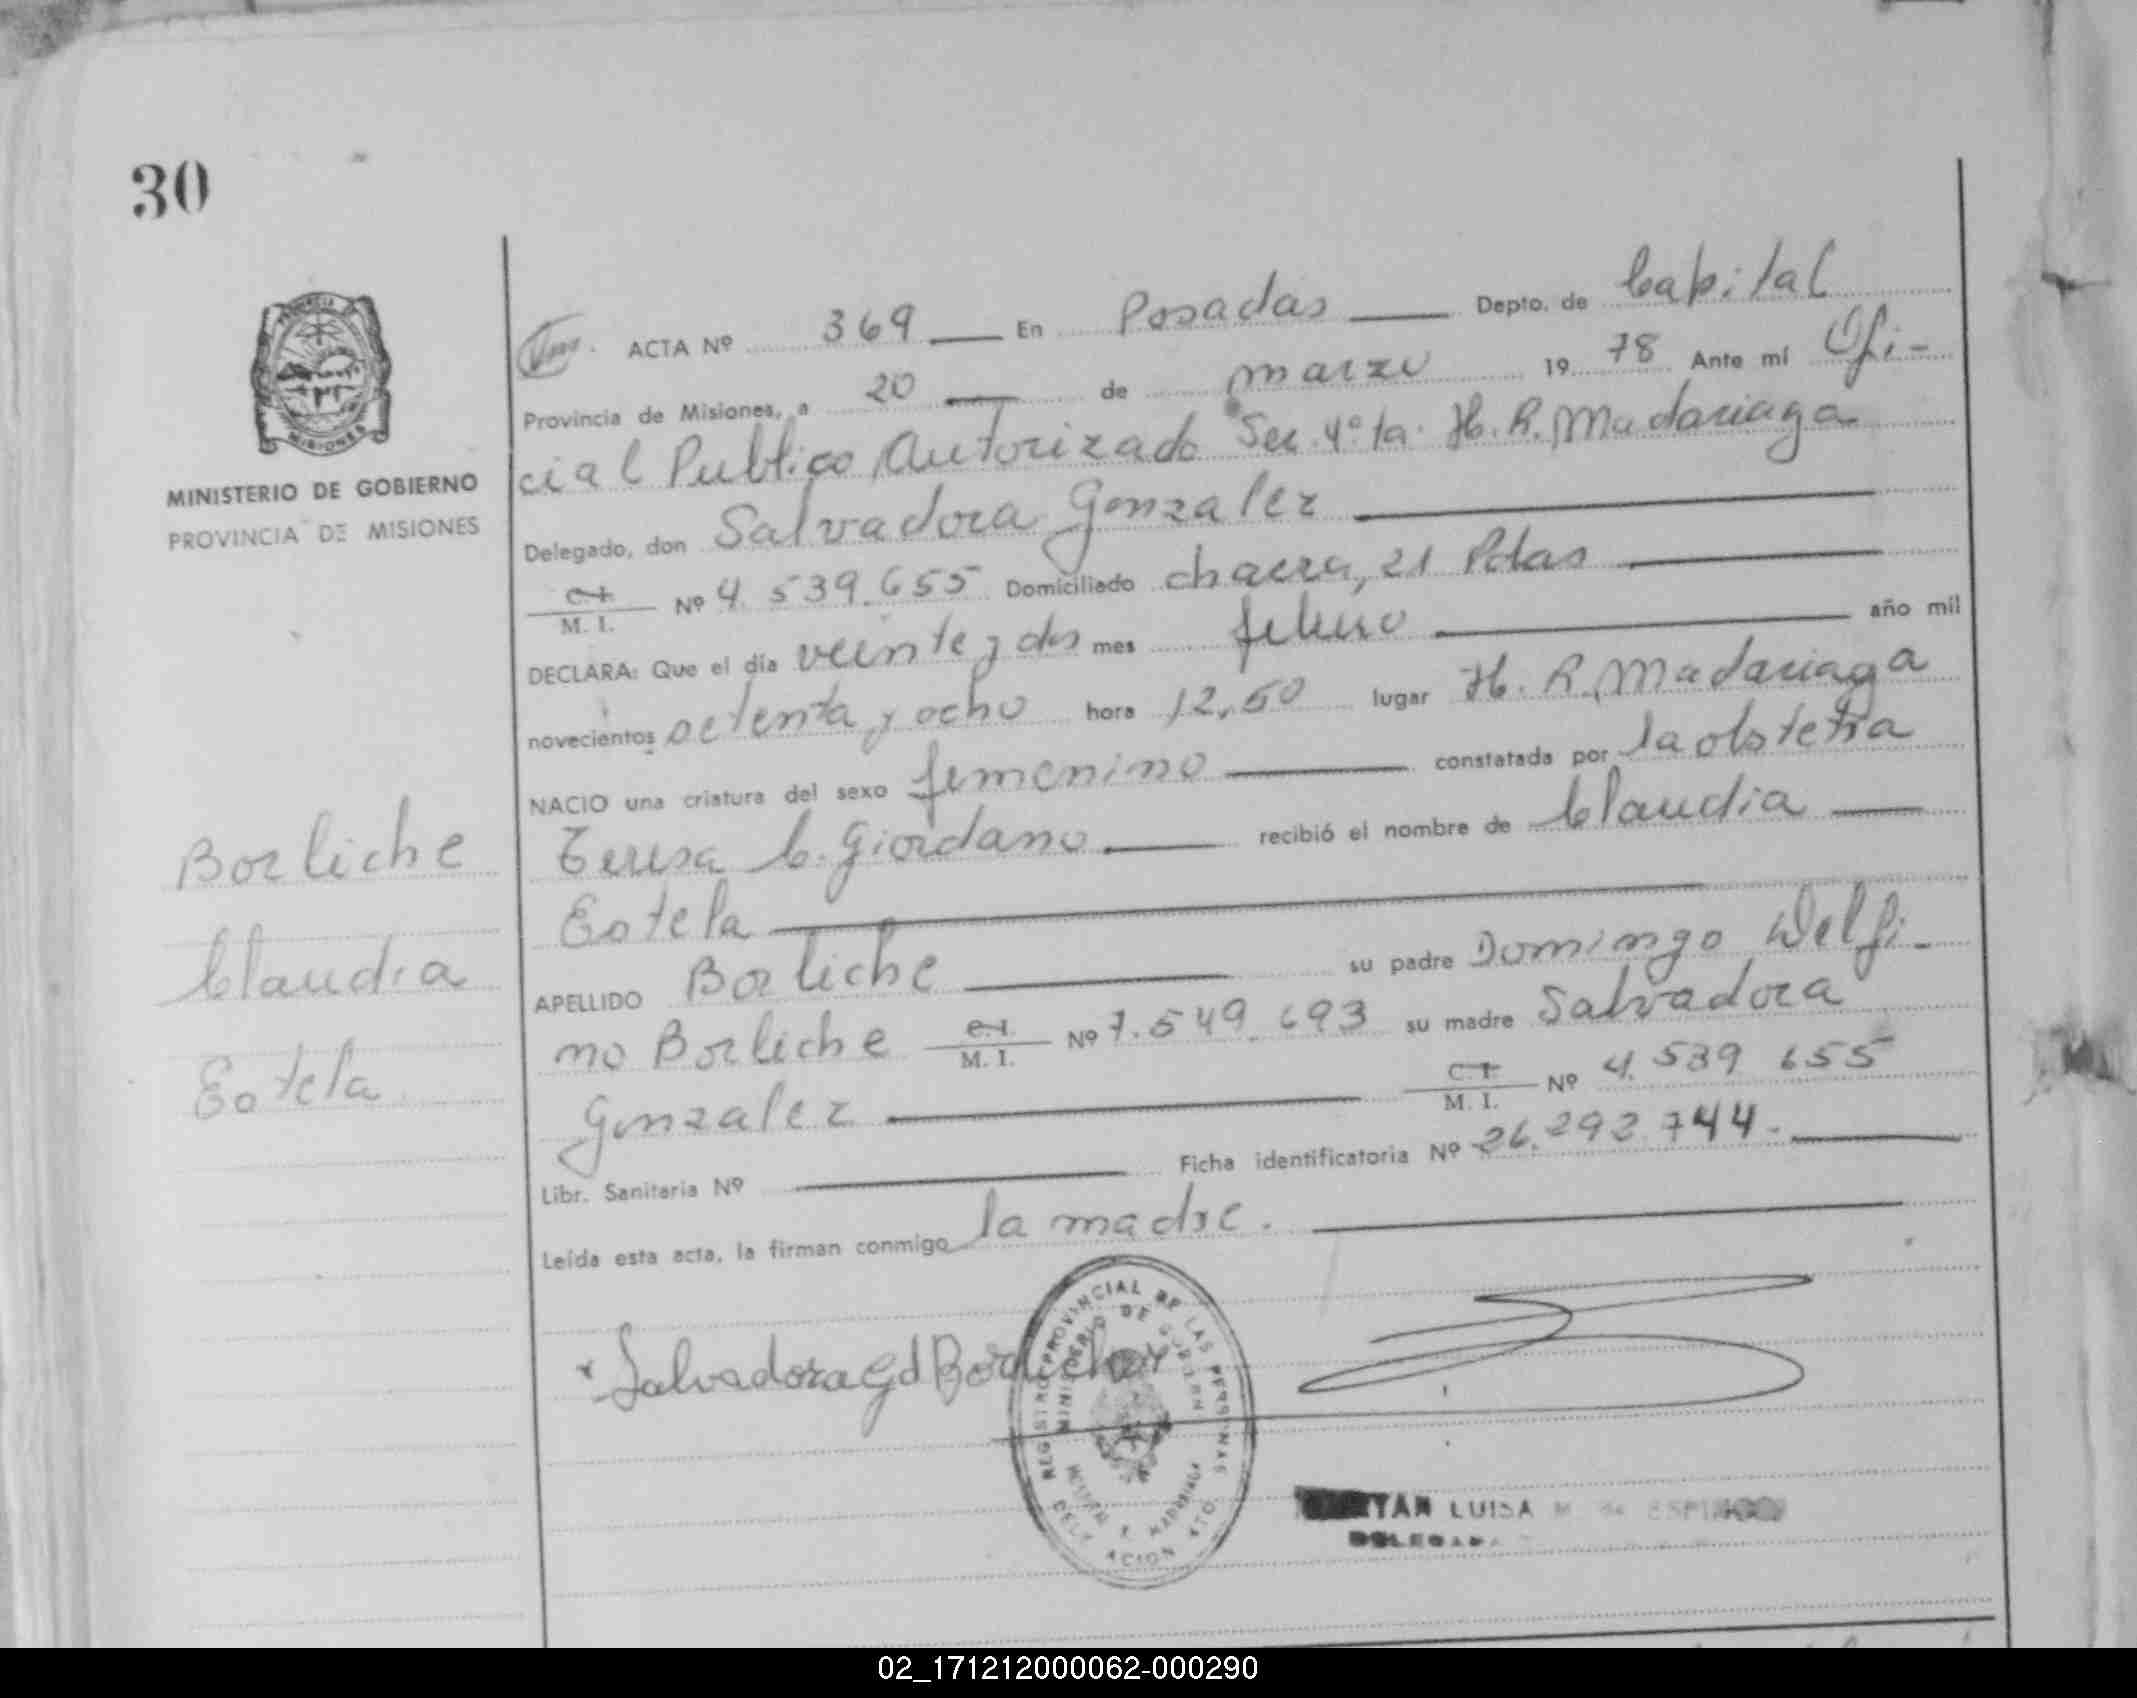 30
MINISTERIO DE GOBIERNO
PROVINCIA DE MISIONES
ACTA Nº 369 En Posadas Depto. de Capital
Provincia de Misiones, a 20 de marzo 1978 Ante mí Ofi-
cial Publico Autorizado Sec. 4º ta. H. R. Madariaga
Delegado, don Salvadora Gonzalez
C I M. I. Nº 4.539.655 Domiciliado chacra, 21 Pdas
DECLARA: Que el día veinte y dos mes febrero año mil
novecientos setenta y ocho hora 12,50 lugar H. R. Madariaga
NACIO una criatura del sexo femenino constatada por la obstetra
Teresa C. Giordano recibió el nombre de Claudia
Estela
APELLIDO Borliche su padre Domingo Delfi-
no Borliche C I M. I. Nº 7.549.693 su madre Salvadora
Gonzalez C I M. I. Nº 4.539 655
Libr. Sanitaria Nº Ficha identificatoria Nº 26.292.744.
Leída esta acta, la firman conmigo la madre.
Borliche
Claudia
Estela
Salvadora G d Borliche
REGISTRO PROVINCIAL DE LAS PERSONAS
MINISTERIO DE GOBIERNO
LUISA M. de
DELEGADA
02_171212000062-000290